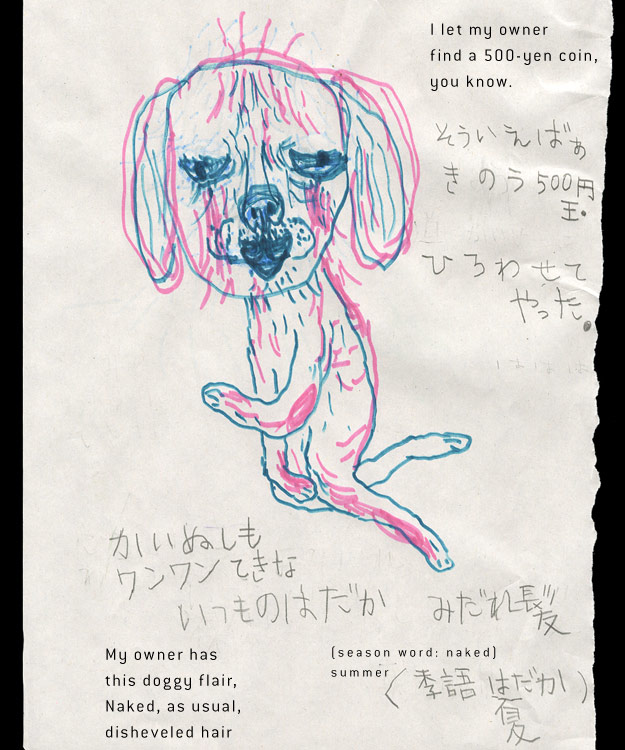 I let my owner
find a 500-yen coin,
you know.
そういえばぁ
きのう500円
玉。
ひろわせて
やった。
かいぬしも
ワンワンてきな
いつものはだか みだれ髪
My owner has
this doggy flair,
Naked, as usual,
disheveled hair
(season word: naked)
summer
(季語 はだか)
夏